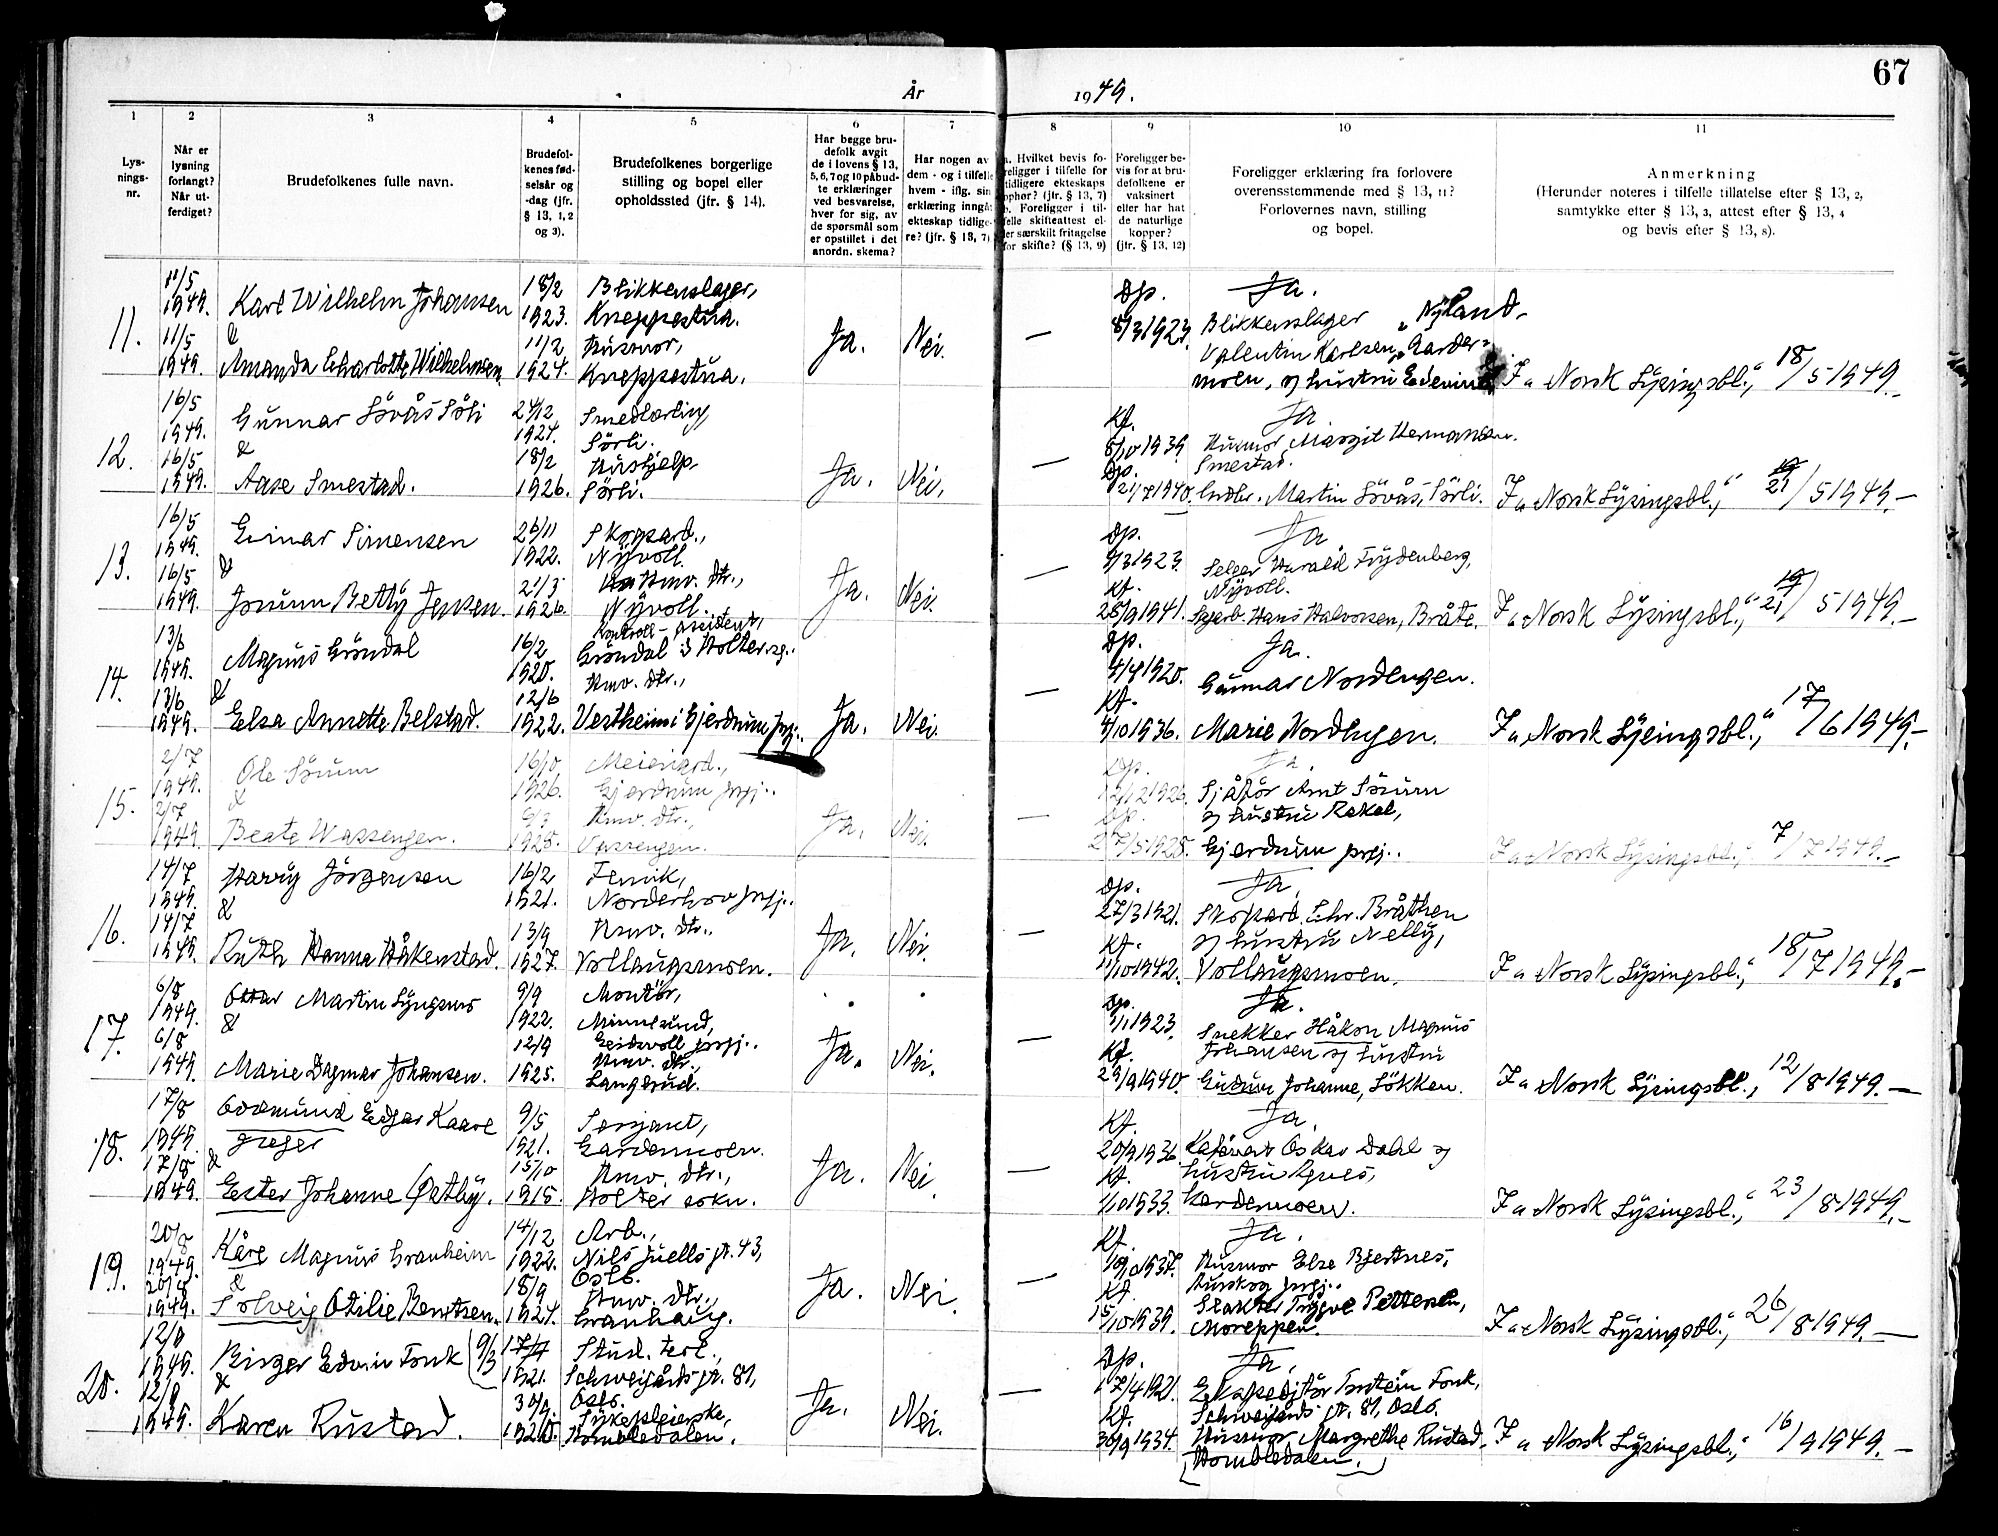 67
År 1949.
1 2 3 4 5 6 7 8 9 10 11
Lys-
nings-
nr.
Når er
lysning
forlangt?
Når ut-
ferdiget?
Brudefolkenes fulle navn.
Brudefol-
kenes fød-
selsår og
-dag (jfr.
§ 13, 1, 2
og 3).
Brudefolkenes borgerlige
stilling og bopel eller
opholdssted (jfr. § 14).
Har begge bru-
defolk avgit
de i lovens § 13,
5, 6, 7 og 10 påbud-
te erklæringer
ved besvarelse,
hver for sig, av
de spørsmål som
er opstillet i det
anordn. skema?
Har nogen av
dem - og i tilfelle
hvem - iflg. sin
erklæring inngåt
ekteskap tidlige-
re? (jfr. § 13, 7)
a. Hvilket bevis fo-
religger i tilfelle for
tidligere ekteskaps
ophør? (jfr. § 13, 7)
b. Foreligger i til-
felle skifteattest el-
ler særskilt fritagelse
for skifte? (§ 13, 9)
Foreligger be-
vis for at bru-
defolkene er
vaksinert
eller har hat
de naturlige
kopper?
(jfr. § 13, 12)
Foreligger erklæring fra forlovere
overensstemmende med § 13, 11?
Forlovernes navn, stilling
og bopel.
Anmerkning
(Herunder noteres i tilfelle tillatelse efter § 13, 2,
samtykke efter § 13, 3, attest efter § 13, 4
og bevis efter § 13, 8).
11.
11/5
1949.
11/5
1949.
Karl Wilhelm Johansen
&
Amanda Charlotte Wilhelmsen.
18/2
1923.
11/2
1924.
Blikkenslager,
Kneppestua.
Husmor,
Kneppestua.
Ja.
Nei.
—
Dp.
8/3 1923.
Ja.
Blikkenslager "Nyland"
Valentin Karlsen, Garder-
moen, og hustru
I "Norsk Lysingsbl.", 18/5 1949.—
12.
16/5
1949.
16/5
1949.
Gunnar Lövås Söli
&
Aase Smestad.
24/12
1924.
18/2
1926.
Smedlærling,
Sörli.
Hushjelp,
Sörli.
Ja.
Nei.
—
Kf.
8/10 1939.
Dp.
21/7 1940.
Ja.
Husmor Margit Hermansen.
Smestad.
Martin Lövås, Sörli.
I "Norsk Lysingsbl.", 21/5 1949.—
13.
16/5
1949.
16/5
1949.
Einar Simensen
&
Jorunn Betty Jensen.
26/11
1922.
21/3
1926.
Skogsarb.,
Nyvoll.
Hmv. dtr.,
Nyvoll.
Ja.
Nei.
—
Dp.
4/3 1923.
Kf.
28/9 1941.
Ja
Selger Harald Frydenberg,
Nyvoll.
Hans Halvorsen, Bråte.
I "Norsk Lysingsbl.", 21/5 1949.—
14.
13/6
1949.
13/6
1949.
Magnus Gröndal
&
Elsa Annette Belstad.
16/2
1920.
12/6
1922.
Kontroll-assistent,
Gröndal i Holter sg..
Hmv. dtr.,
Vestheim i Gjerdrum prgj..
Ja.
Nei.
—
Dp.
4/4 1920.
Kf.
4/10 1936.
Ja.
Gunnar Nordengen.
Marie Nordengen.
I "Norsk Lysingsbl.", 17/6 1949.—
15.
2/7
1949.
2/7
1949.
Ole Sörum
&
Beate Wassengen.
1926.
1925.
Meieriarb.,
Gjerdrum prgj..
Hmv. dtr.,
Vassengen.
Ja.
Nei.
—
Dp.
12/12 1926.
Dp.
27/5 1925.
Ja.
Sjåför Arnt Sörum
og hustru Rakel,
Gjerdrum prgj..
I "Norsk Lysingsbl.", 7/7 1949.—
16.
14/7
1949.
14/7
1949.
Harry Jörgensen
&
Ruth Hanna Håkenstad.
16/2
1921.
13/9
1927.
Fenrik,
Norderhov prgj..
Hmv. dtr..
Vollaugsmoen.
Ja.
Nei.
—
Dp.
27/3 1921.
Kf.
11/10 1942.
Ja.
Skogsarb. Chr. Bråthen
og hustru Nelly,
Vollaugsmoen.
I "Norsk Lysingsbl.", 18/7 1949.—
17.
6/8
1949.
6/8
1949.
Ottar Martin Lyngsnes
&
Marie Dagmar Johansen.
9/9
1922.
12/9
1925.
Montör,
Minnesund,
Eidsvoll prgj..
Hmv. dtr.,
Langerud.
Ja.
Nei.
—
Dp.
1/1 1923.
Kf.
29/9 1940.
Ja.
Snekker Håkon Magnus
Johansen og hustru
Gudrun Johanne, Lökken.
I "Norsk Lysingsbl.", 12/8 1949.—
18.
17/8
1949.
17/8
1949.
Oddmund Edgar Kaare
Jreger
&
Ester Johanne Østby.
9/5
1921.
15/10
1918.
Sersjant,
Gardermoen.
Hmv. dtr.,
Holter sokn.
Ja.
Nei.
—
Kf.
20/9 1936.
Kf.
1/10 1933.
Ja.
Kafévert Oskar Dahl og
hustru Agnes,
Gardermoen.
I "Norsk Lysingsbl.", 23/8 1949.—
19.
20/8
1949.
20/8
1949.
Kåre Magnus Granheim
&
Solveig Otilie Berntsen.
14/12
1922.
18/9
1924.
Arb.,
Nils Juells gt. 43,
Oslo.
Hmv. dtr.,
Granhaug.
Ja.
Nei.
—
Kf.
10/10 1937.
Kf.
15/10 1939.
Ja.
Husmor Else Bjertnes,
Hurdal prgj..
Slakter Trygve Pettersen,
Moreppen.
I "Norsk Lysingsbl.", 26/8 1949.—
20.
12/9
1949.
12/9
1949.
Birger Edwin Fonk (9/3
&
Karen Rustad.
17/4
1921.
30/9
1920.
Stud. teol.,
Schweigårds gt. 81,
Oslo.
Sykepleierske,
Hombledalen.
Ja.
Nei.
—
Dp.
17/4 1921.
Kf.
30/9 1934.
Ja.
Ekspeditör Torstein Fonk,
Schweigårds gt. 81, Oslo.
Husmor Margrethe Rustad,
(Hombledalen.)
I "Norsk Lysingsbl.", 16/9 1949.—